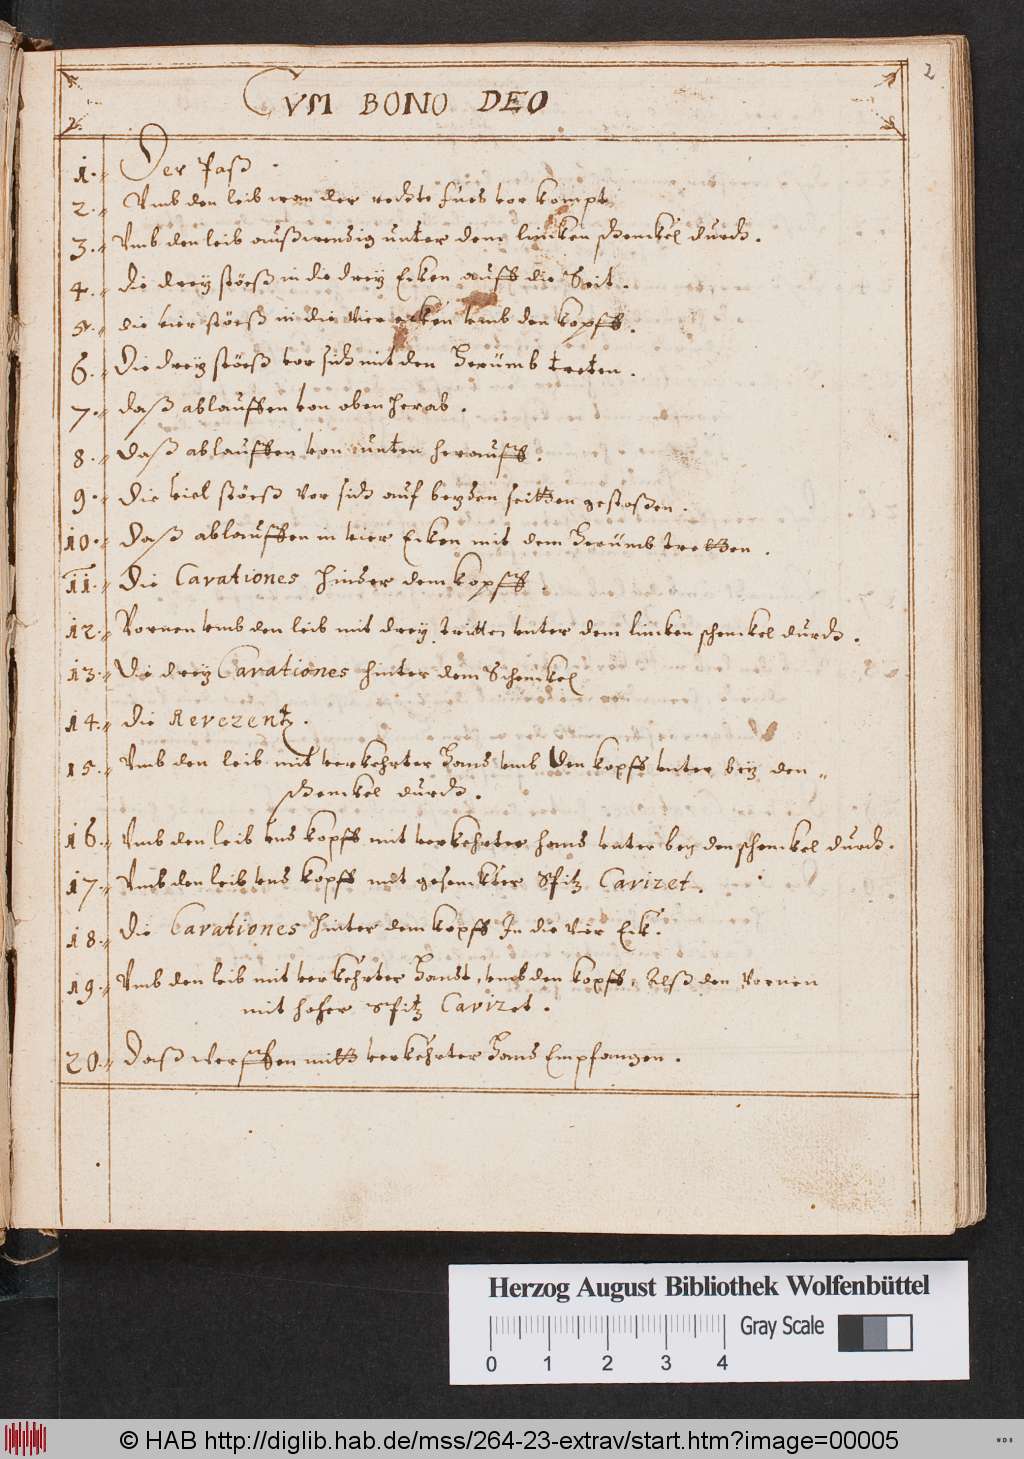 2
CVM BONO DEO
2.
1. Der Paß.
2. Vmb den leib wan der rechte fues vor kompt
3. Vmb den leib außwendig unter dem lincken schenckel durch.
4. Die dreÿ stöeß in die dreÿ Ecken auff die Seit.
5. die vier stöeß in die vier ecken vmb den kopff.
6. Die dreÿ stöeß vor sich mit den Herümb treten.
7. daß ablauffen von oben herab.
8. daß ablauffen von unten herauff.
9. Die viel stöeß vor sich auf beyden seitten gestoßen.
10. Daß ablauffen in vier Ecken mit dem Herümb tretten.
11. Die Cavationes hinder dem kopff.
12. Vornen vmb den leib mit dreÿ tritten vnter dem lincken schenckel durch.
13. Die dreÿ Cavationes hinter dem Schenckel
14. Die Reverentz.
15. Vmb den leib mit verkehrter Hand vmb den kopff vnter beÿ den
schenckel durch.
16. Vmb den leib vnd kopff mit verkehrter hand vnter beÿ den schenckel durch.
17. Vmb den leib vnd kopff mit gesenckter Spitz Cavizet.
18. Die Cavationes hinter dem kopff In die vier Eck.
19. Vmb den leib mit verkehrter Handt, vmb den kopff, Alß den Vornen
mit hoher Spitz Cavizet.
20. Daß Werffen mitt verkehrter Hand Empfangen.
Herzog August Bibliothek Wolfenbüttel
Gray Scale
0 1 2 3 4
© HAB http://diglib.hab.de/mss/264-23-extrav/start.htm?image=00005